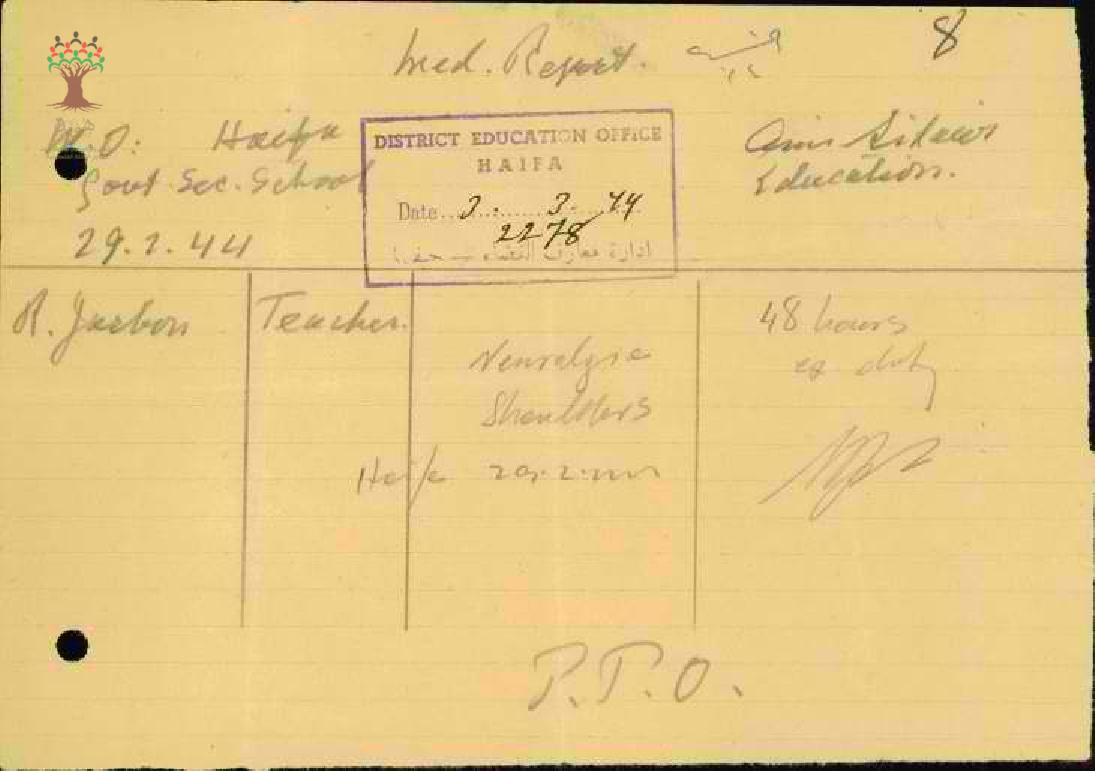 8
Med. Report.
M.O: Haifa
Govt. Sec. School
29.2.44
DISTRICT EDUCATION OFFICE
HAIFA
Date 3. 3. 44
2278
ادارة معارف
Education.
R.
Teacher.
Neuralgia
Shoulders
Haifa 29.2.
48 hours
ex duty
P.T.O.